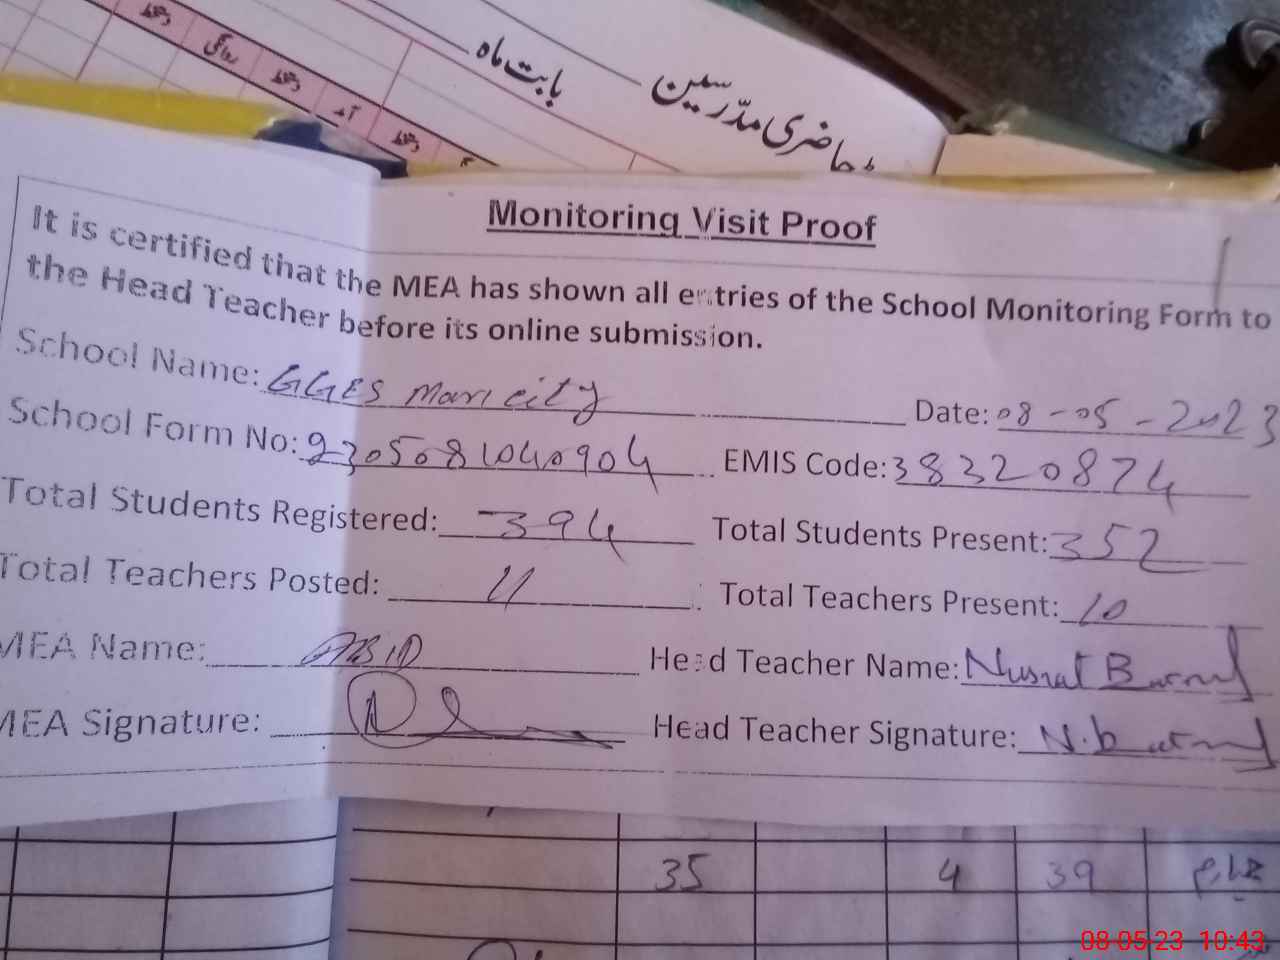 دستخط
روانگی
دستخط
آمد
دستخط
حاضری مدّرسین
بابت ماہ
Monitoring Visit Proof
It is certified that the MEA has shown all entries of the School Monitoring Form to
the Head Teacher before its online submission.
School Name: GGES Mari city Date: 08-05-2023
School Form No: 2305081040904 EMIS Code: 38320874
Total Students Registered: 394 Total Students Present: 352
Total Teachers Posted: 11 Total Teachers Present: 10
MEA Name: ABID Head Teacher Name: Nusrat
MEA Signature: Head Teacher Signature: N.
35 4 39 چہارم
08-05-23 10:43